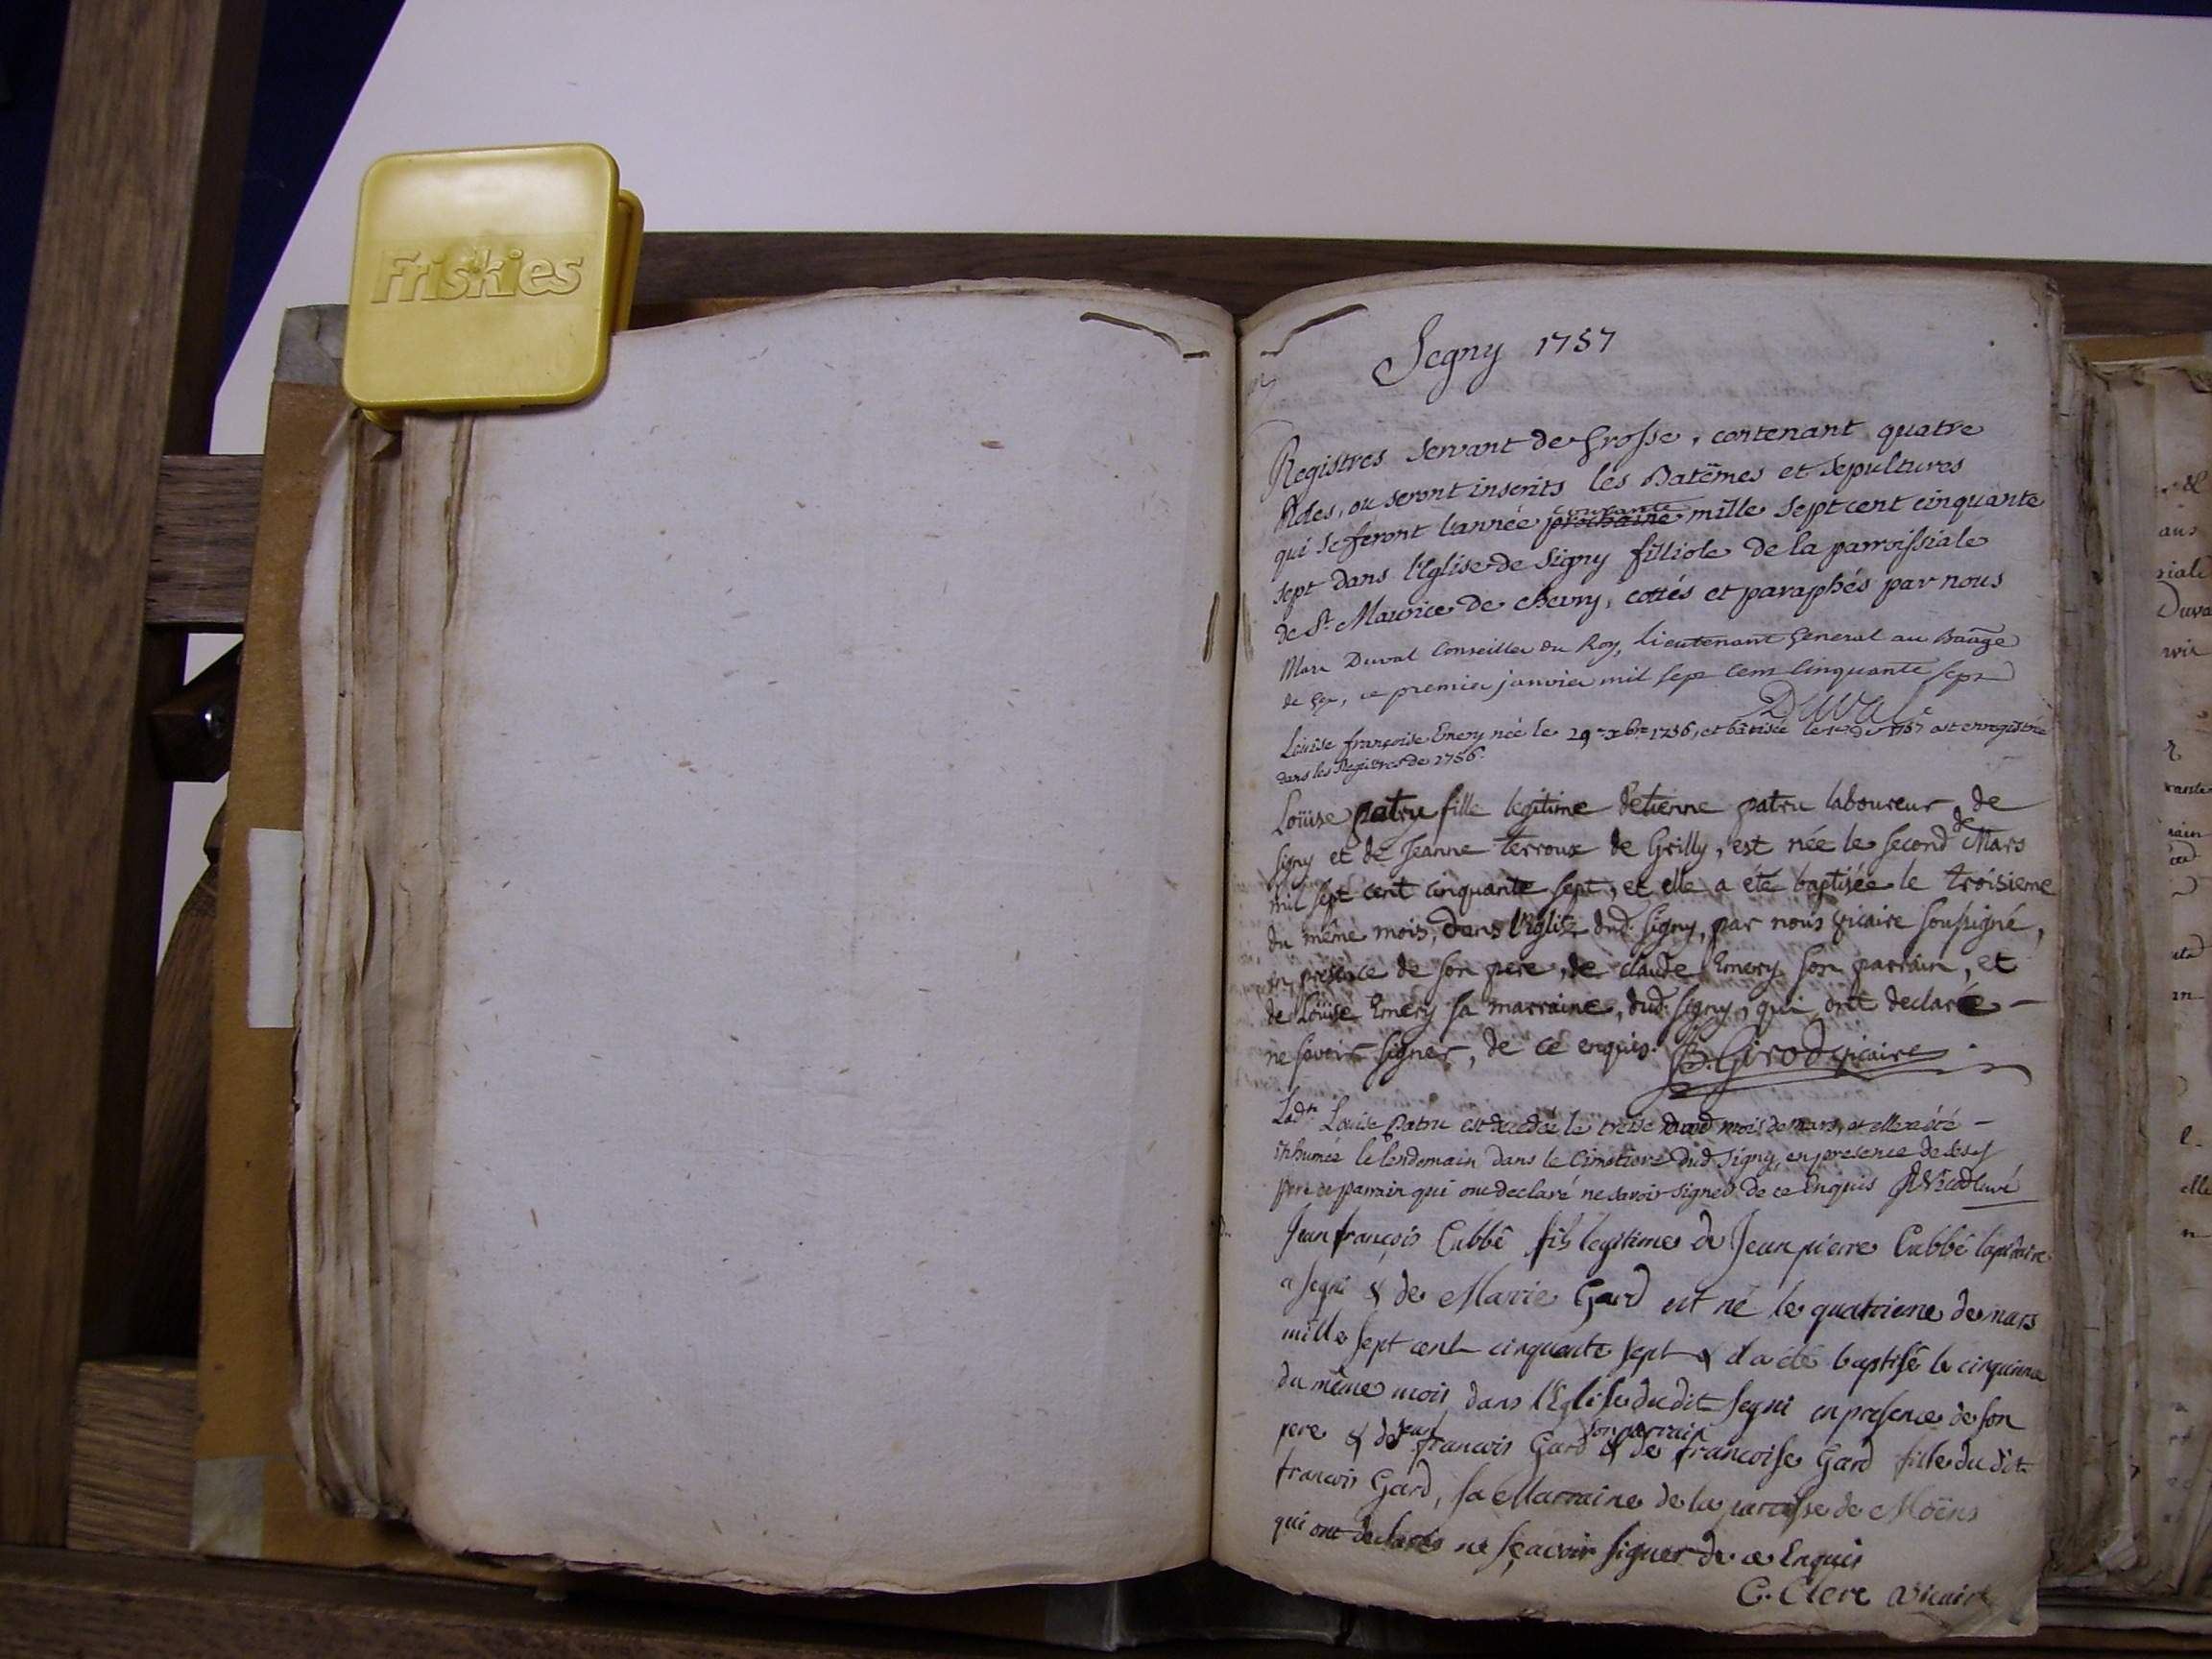 Friskies
Segny 1757
Registres servant de Grosse, contenant quatre
Rôles, ou seront inscrits les Batêmes et Sepultures
qui se feront l'année prochaine courante mille sept cent cinquante
sept dans l'Eglise de Signy filliole de la parroissiale
de St. Maurice de chevry, cottés et paraphés par nous
Marc Duval Conseiller du Roy, Lieutenant General au Baãge
de Gex, ce premier janvier mil sept cent cinquante sept
Duval
Louise françoise Emery née le 29e xbre 1756, et bâtisée le 1er de 1757 est enregistrée
dans les Registres de 1756.
Loüise patru fille legitime d'etienne patru laboureur de
signy et de Jeanne terroux de Grilly, est née le second de Mars
mil sept cent cinquante sept, et elle a eté baptisée le troisieme
du même mois, dans l'Eglise dud. signy, par nous vicaire soussigné,
en presence de son pere, de claude Emery son parrain, et
de Loüise Emery sa marraine, dud. signy, qui ont declaré -
ne savoir signer, de ce enquis. B. Girod vicaire
Ladte Louise Patru est decedée le treise dud mois de mars, et elle a été -
inhumée le lendemain dans le Cimetiere dud Signy, en presence de ses
pere et parrain qui ont declaré ne savoir signer de ce Enquis
Jean françois Cabbé fils legitime de Jean pierre Cabbé lapidaire
a segni & de Marie Gard est né le quatrieme de mars
mille sept cent cinquante sept & il a été baptisé le cinquieme
du même mois dans l'Eglise dudit Segni en presence de son
pere & de Jean francois Gard son parrain & de francoise Gard fille du dit
francois Gard, sa Marraine de la paroisse de Moëns
qui ont declarés ne sçavoir signer de ce Enquis
C. Clerc Vicaire